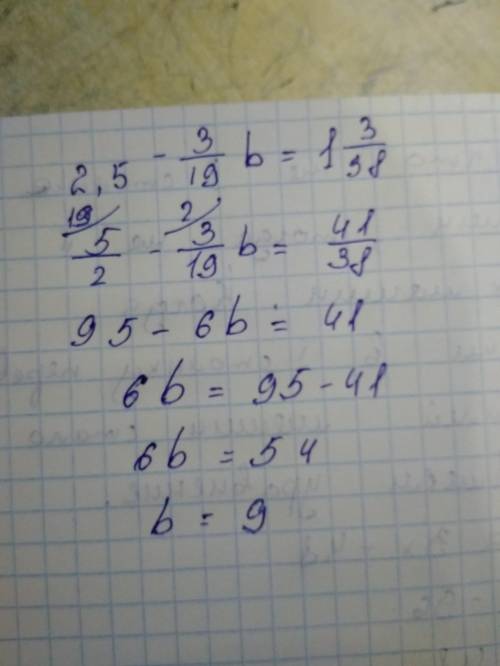 2,5 - 3/19 b = 1 3/38
19/ 5/2 - 2/ 3/19 b = 41/38
95 - 6b = 41
6b = 95 - 41
6b = 54
b = 9